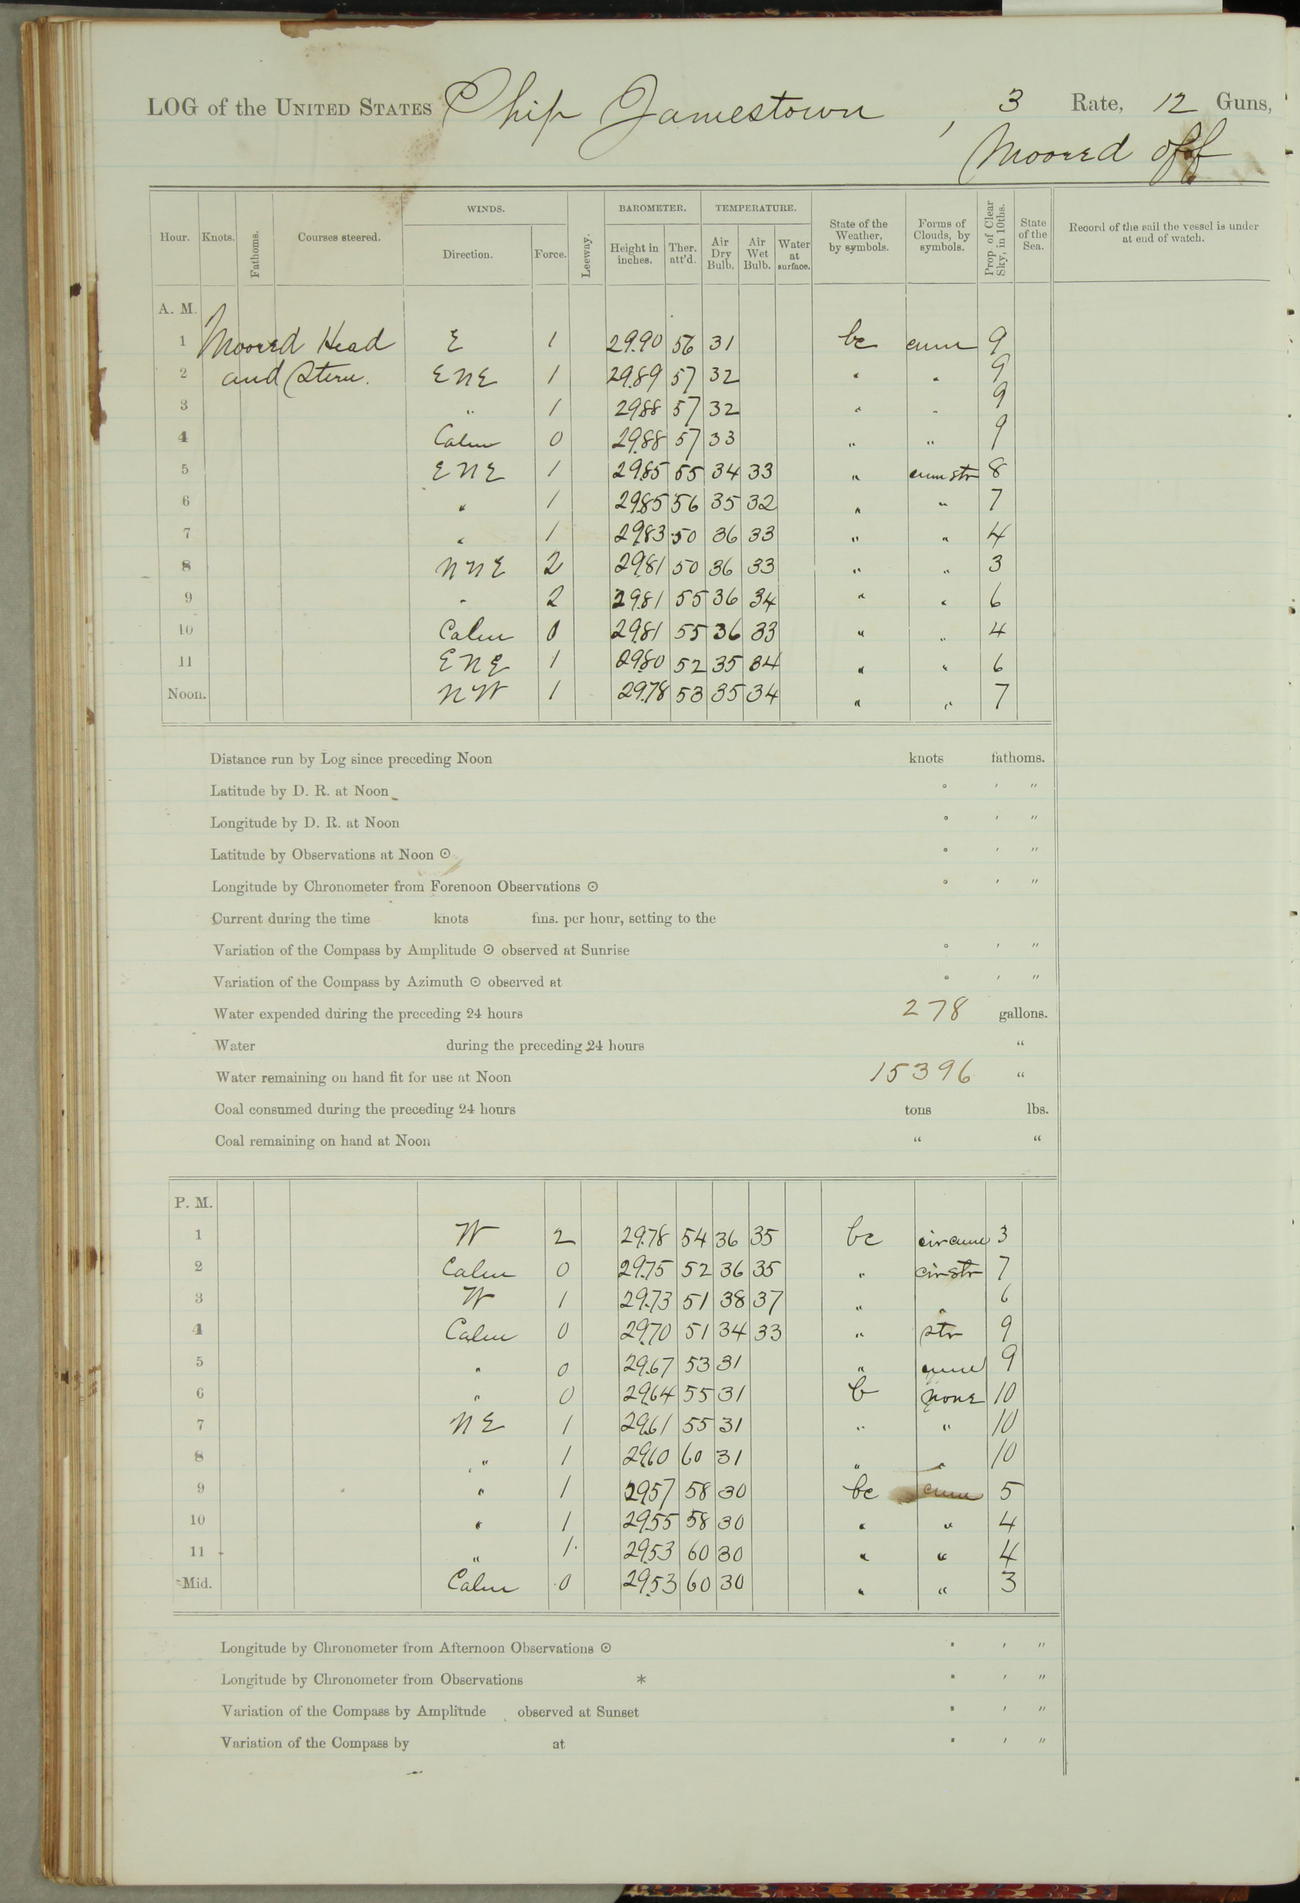 LOG of the UNITED STATES Ship Jamestown, 3 Rate, 12 Guns,
Moored off
WINDS. BAROMETER. TEMPERATURE.
Hour. Knots. Fathoms. Courses steered. Direction. Force. Leeway. Height in inches. Ther. att'd. Air Dry Bulb. Air Wet Bulb. Water at surface. State of the Weather, by symbols. Forms of Clouds, by symbols. Prop. of Clear Sky, in 10ths. State of the Sea. Record of the sail the vessel is under at end of watch.
A. M.
1 Moored Head E 1 29.90 56 31 bc cum 9
2 and Stern. ENE 1 29.89 57 32 " " 9
3 " 1 29.88 57 32 " " 9
4 Calm 0 29.88 57 33 " " 9
5 ENE 1 29.85 55 34 33 " cum str 8
6 " 1 29.85 56 35 32 " " 7
7 " 1 29.83 50 36 33 " " 4
8 NNE 2 29.81 50 36 33 " " 3
9 " 2 29.81 55 36 34 " " 6
10 Calm 0 29.81 55 36 33 " " 4
11 ENE 1 29.80 52 35 34 " " 6
Noon. NW 1 29.78 53 35 34 " " 7
Distance run by Log since preceding Noon knots fathoms.
Latitude by D. R. at Noon ° ′ ″
Longitude by D. R. at Noon ° ′ ″
Latitude by Observations at Noon ⊙ ° ′ ″
Longitude by Chronometer from Forenoon Observations ⊙ ° ′ ″
Current during the time knots fms. per hour, setting to the
Variation of the Compass by Amplitude ⊙ observed at Sunrise ° ′ ″
Variation of the Compass by Azimuth ⊙ observed at ° ′ ″
Water expended during the preceding 24 hours 278 gallons.
Water during the preceding 24 hours "
Water remaining on hand fit for use at Noon 15396 "
Coal consumed during the preceding 24 hours tons lbs.
Coal remaining on hand at Noon " "
P. M.
1 W 2 29.78 54 36 35 bc cir cum 3
2 Calm 0 29.75 52 36 35 " cir str 7
3 W 1 29.73 51 38 37 " " 6
4 Calm 0 29.70 51 34 33 " str 9
5 " 0 29.67 53 31 " cum 9
6 " 0 29.64 55 31 b none 10
7 NE 1 29.61 55 31 " " 10
8 " 1 29.60 60 31 " " 10
9 " 1 29.57 58 30 bc cum 5
10 " 1 29.55 58 30 " " 4
11 " 1 29.53 60 30 " " 4
Mid. Calm 0 29.53 60 30 " " 3
Longitude by Chronometer from Afternoon Observations ⊙ ° ′ ″
Longitude by Chronometer from Observations * ° ′ ″
Variation of the Compass by Amplitude observed at Sunset ° ′ ″
Variation of the Compass by at ° ′ ″